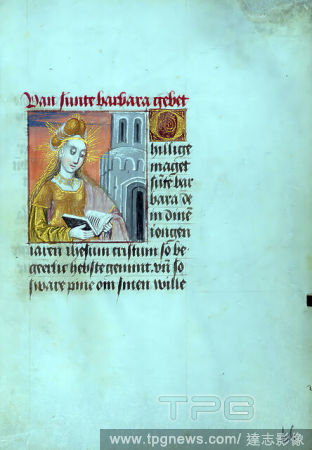 Van sunte barbara gebet
O
hillige
maget
sūte bar
bara de
in dinē
iongen
iaren ihesum cristum so be
geerlic hebste gemint. vn̄ so
sware pine om sinen wille
TPG
www.tpgnews.com/ 達志影像